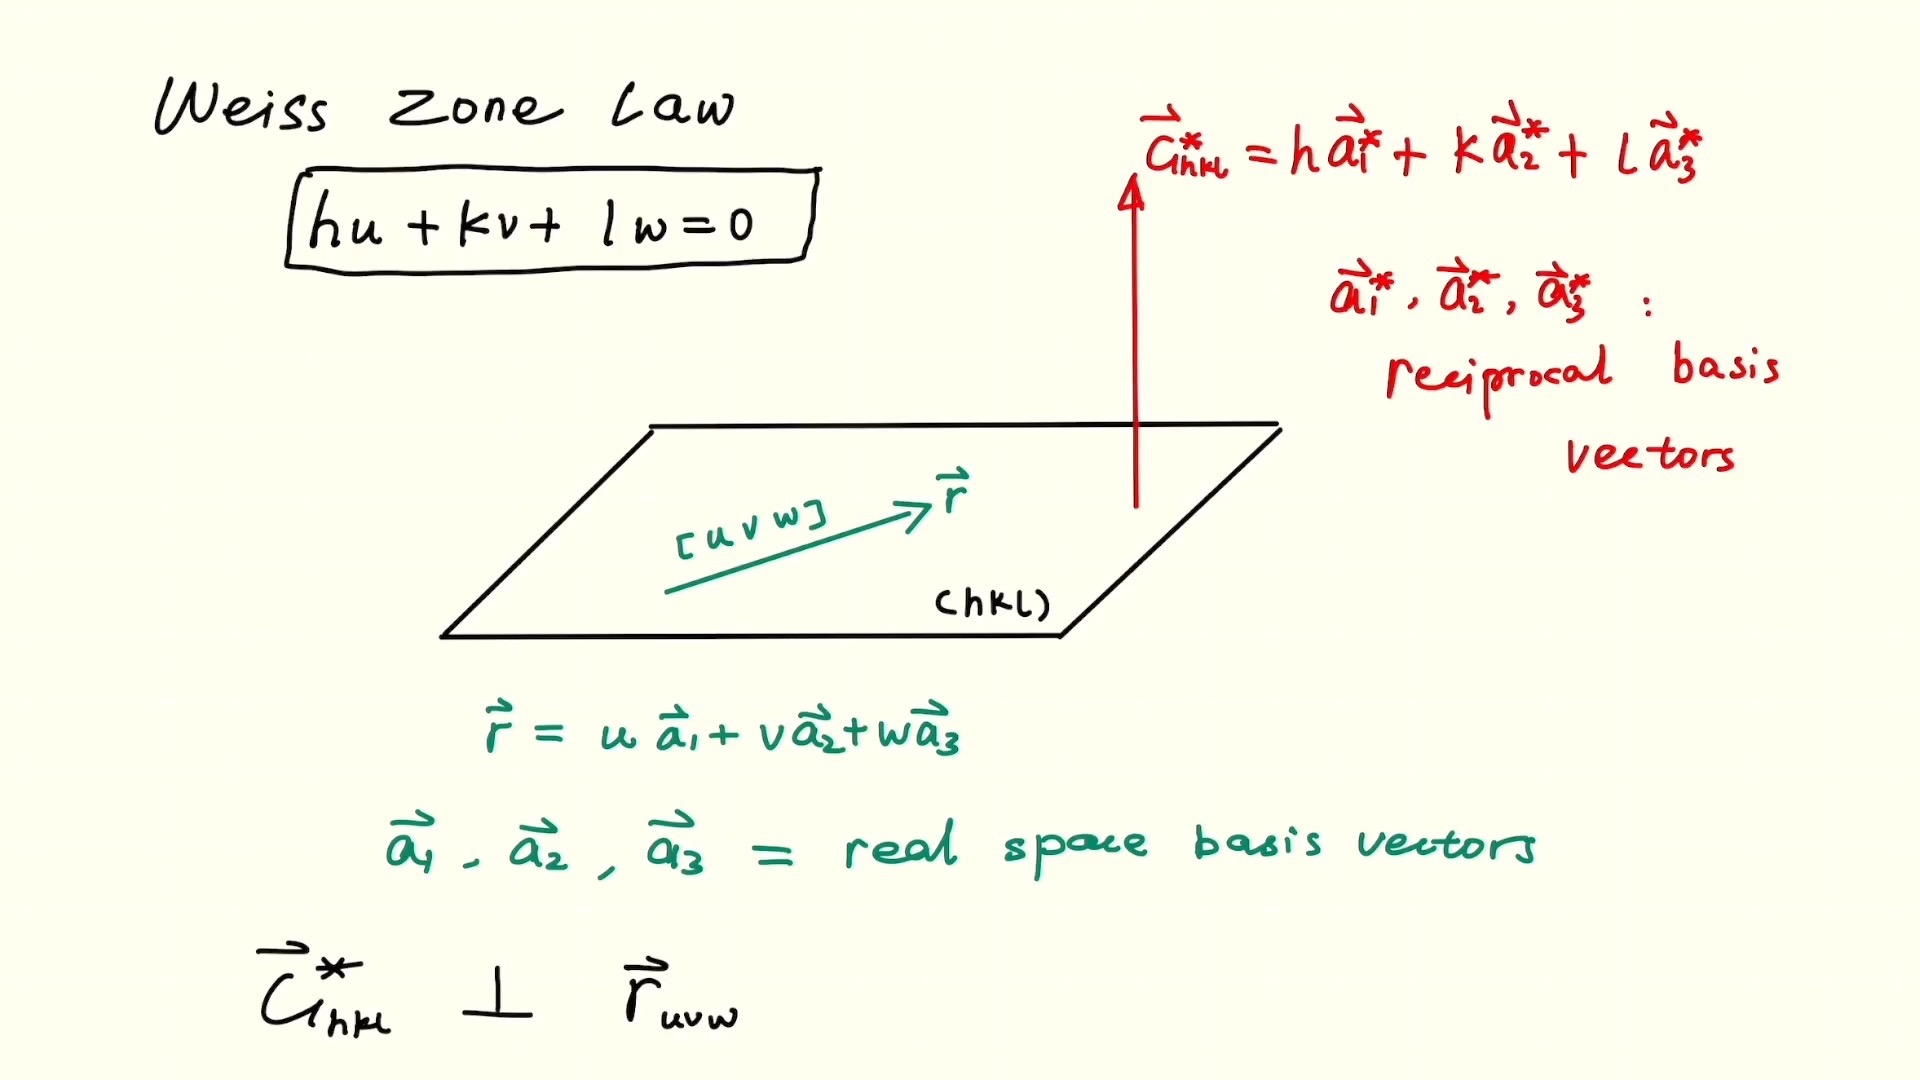 Weiss Zone Law
hu + kv + lw = 0
G⃗*hkl = h a⃗1* + k a⃗2* + l a⃗3*
a⃗1*, a⃗2*, a⃗3* :
reciprocal basis
vectors
[u v w] r⃗
(hkl)
r⃗ = u a⃗1 + v a⃗2 + w a⃗3
a⃗1, a⃗2, a⃗3 = real space basis vectors
G⃗*hkl ⊥ r⃗uvw